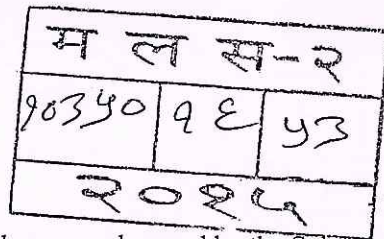 म ल स-२
१०३५० १६ ५३
२०१५